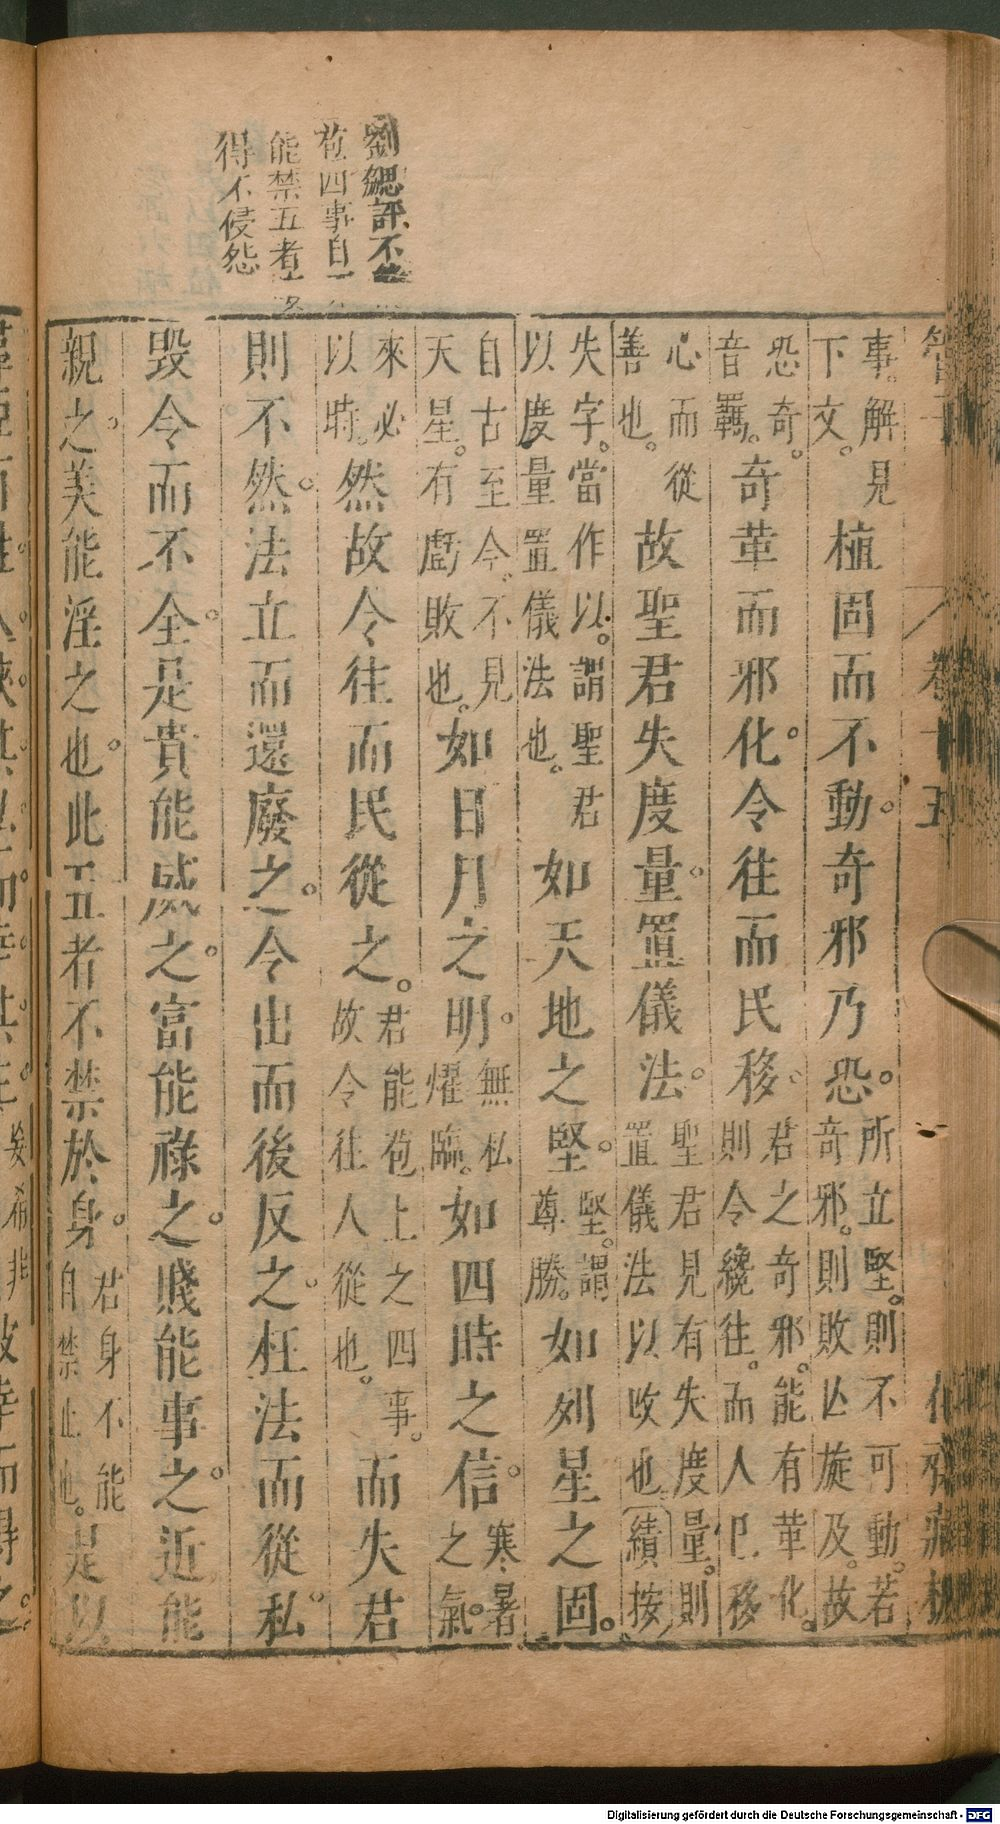 劉勰評不
苞四事自
能禁五者
得不侵怨
管子
卷十五
事。解見
下文。
植固而不動。奇邪乃恐。
所立堅。則不可動。若
奇邪。則敗亡旋及。故
恐奇。
音羈。
奇革而邪化。令往而民移。
君之奇邪。能有革化。
則令纔往。而人已移
心而從
善也。
故聖君失度量。置儀法。
聖君見有失度量。則
置儀法以改也績按
失字。當作以。謂聖君
以度量置儀法也。
如天地之堅。
堅。謂
尊勝。
如列星之固。
自古至今。不見
天星。有虧敗也。
如日月之明。
無私
燿臨。
如四時之信。
寒暑
之氣。
來必
以時。
然故令往而民從之。
君能苞上之四事。
故令往人從也。
而失君
則不然。法立而還廢之。令出而後反之。枉法而從私。
毀令而不全。是貴能威之。富能祿之。賤能事之。近能
親之。美能淫之也。此五者不禁於身。
君身不能
自禁止也。
是以
Digitalisierung gefördert durch die Deutsche Forschungsgemeinschaft - DFG